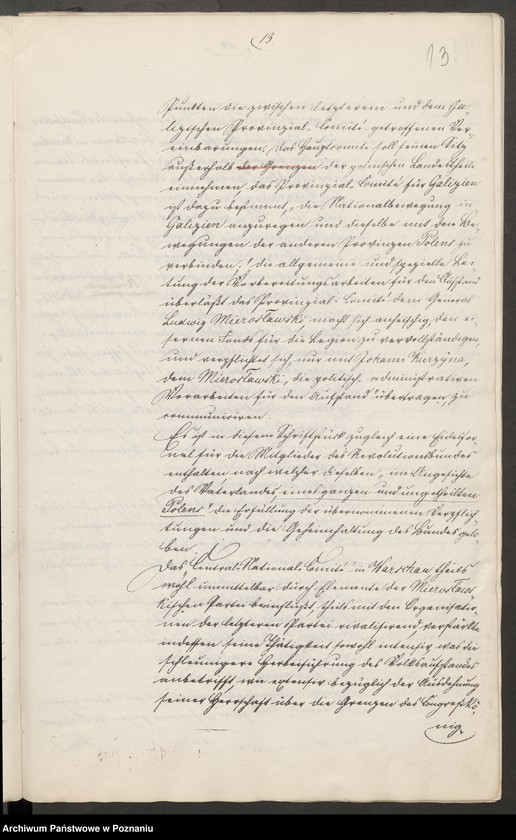 13
13
Punkten die zwischen letzterem und dem Ga-
lizischen Provinzial-Comité getroffenen Ver-
einbarungen. Das Hauptcomité soll seinen Sitz
außerhalb der Grenzen der polnischen Landestheile
einnehmen, das Provinzial-Comité für Galizien
ist dazu bestimmt, „die Nationalbewegung in
Galizien anzuregen und dieselbe mit den Be-
wegungen der anderen Provinzen Polens zu
verbinden“; die allgemeine und spezielle Lei-
tung der Vorbereitungsarbeiten für den Aufstand
überläßt das Provinzial-Comité dem General
Ludwig Mierosławski, macht sich anheischig, den ei-
sernen Fonds für die Legion zu vervollständigen,
und verpflichtet sich, nur mit Johann Kurzyna,
dem Mierosławski, die politisch-administrativen
Vorarbeiten für den Aufstand übertragen, zu
communiciren.
Es ist in diesem Schriftstück zugleich eine Eidesfor-
mel für die Mitglieder des Revolutionsbundes
enthalten nach welcher dieselben, „im Angesichte
des Vaterlandes, eines ganzen und ungetheilten
Polens“ die Erfüllung der übernommenen Verpflich-
tungen und die Geheimhaltung des Bundes gelo-
ben.
Das „Central-National-Comité“ in Warschau, theils
wohl unmittelbar durch Elemente der Mierosław-
skischen Partei beeinflußt, theils mit den Organisatio-
nen der letzteren Partei rivalisirend, verstärkte
indessen seine Thätigkeit sowohl intensiv was die
schleunigere Herbeiführung des Volksaufstandes
anbetrifft, wie extensiv bezüglich der Ausdehnung
seiner Herrschaft über die Grenzen des Congreßkö-
nig-
Archiwum Państwowe w Poznaniu